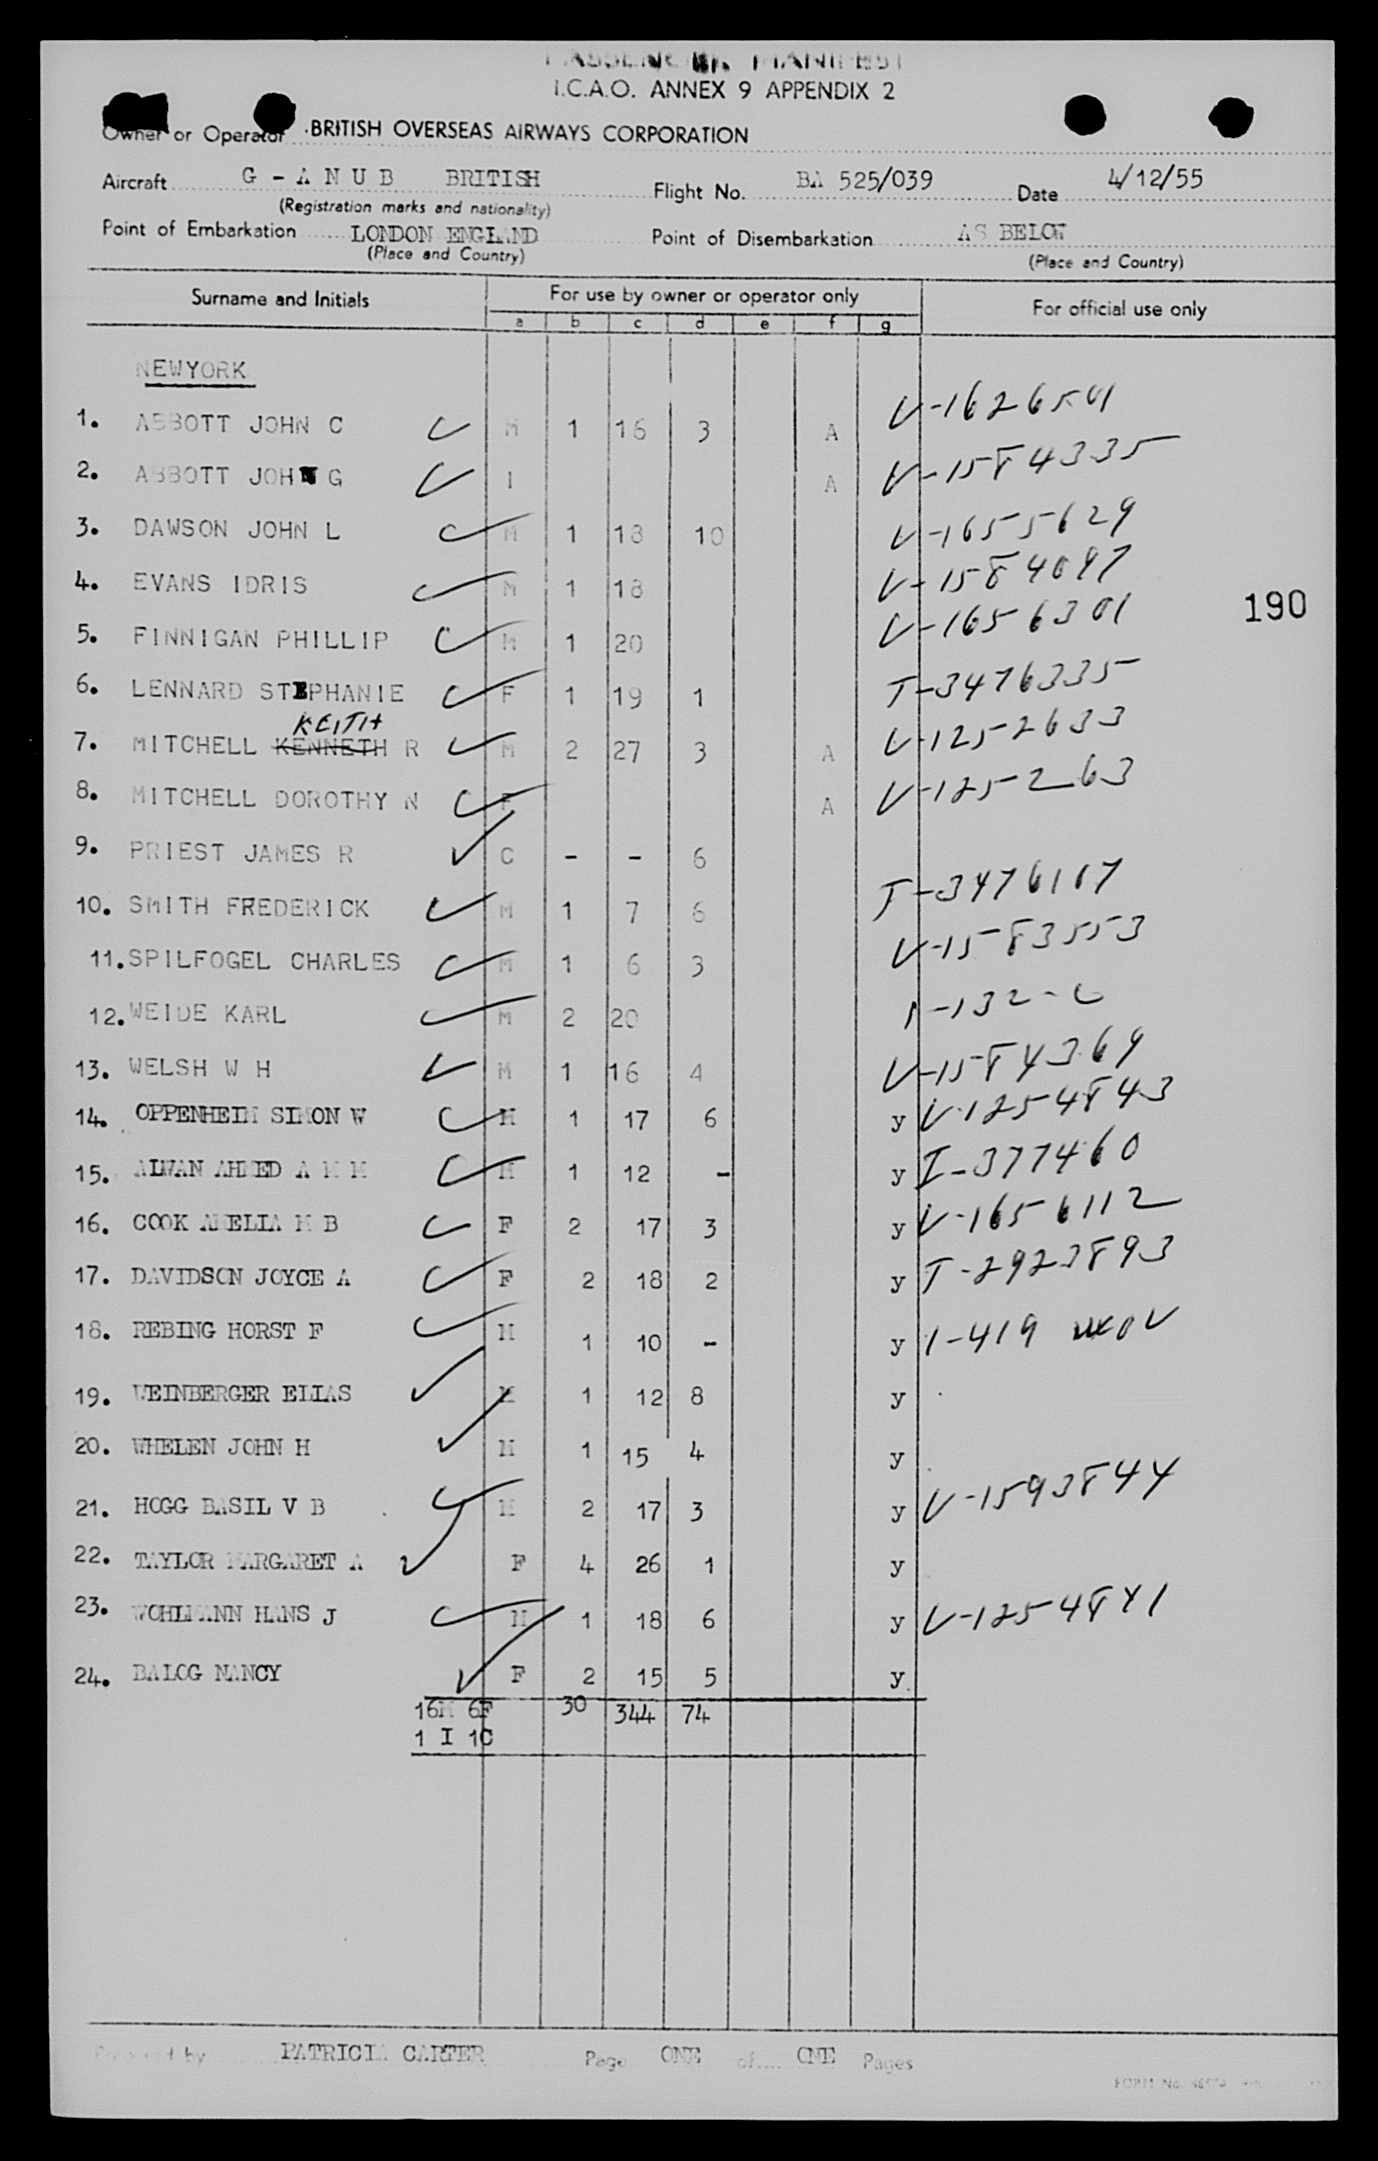 PASSENGER MANIFEST
I.C.A.O. ANNEX 9 APPENDIX 2
Owner or Operator BRITISH OVERSEAS AIRWAYS CORPORATION
Aircraft G - A N U B BRITISH Flight No. BA 525/039 Date 4/12/55
(Registration marks and nationality)
Point of Embarkation LONDON ENGLAND Point of Disembarkation AS BELOW
(Place and Country) (Place and Country)
Surname and Initials For use by owner or operator only For official use only
a b c d e f g
NEWYORK
1. ABBOTT JOHN C M 1 16 3 A V-1626501
2. ABBOTT JOHN G I A V-1584335
3. DAWSON JOHN L M 1 18 10 V-1655629
4. EVANS IDRIS M 1 18 V-1584097
190
5. FINNIGAN PHILLIP M 1 20 V-1656301
6. LENNARD STEPHANIE F 1 19 1 T-3476335
KEITH
7. MITCHELL KENNETH R M 2 27 3 A V-1252633
8. MITCHELL DOROTHY N F A V-125263
9. PRIEST JAMES R C - - 6
10. SMITH FREDERICK M 1 7 6 T-3476107
11. SPILFOGEL CHARLES M 1 6 3 V-1583553
12. WEIDE KARL M 2 20 1-132-C
13. WELSH W H M 1 16 4 V-1584369
14. OPPENHEIM SIMON W M 1 17 6 y V-1254843
15. ALWAN AHMED A M M M 1 12 - y I-377460
16. COOK AMELIA M B F 2 17 3 y V-1656112
17. DAVIDSON JOYCE A F 2 18 2 y T-2923893
18. REBING HORST F M 1 10 - y 1-419
19. WEINBERGER ELIAS M 1 12 8 y
20. WHELEN JOHN H M 1 15 4 y
21. HOGG BASIL V B M 2 17 3 y V-1593844
22. TAYLOR MARGARET A F 4 26 1 y
23. WOHLMANN HANS J M 1 18 6 y V-1254841
24. BALOG NANCY F 2 15 5 y
16M 6F 30 344 74
1 I 1C
Prepared by PATRICIA CARTER Page ONE of ONE Pages
FORM No.